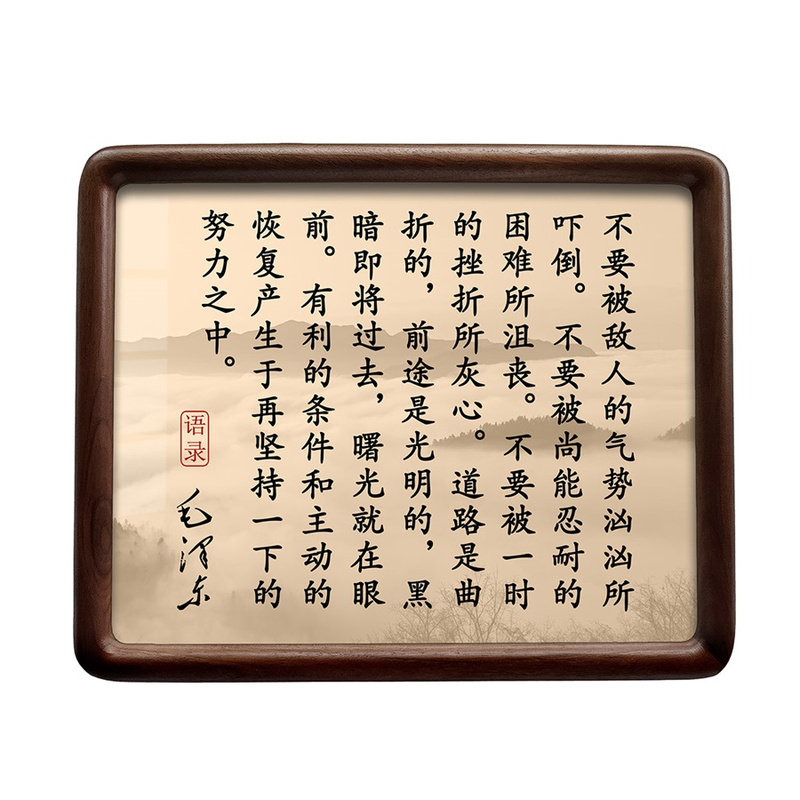 不要被敌人的气势汹汹所
吓倒。不要被尚能忍耐的
困难所沮丧。不要被一时
的挫折所灰心。道路是曲
折的，前途是光明的，黑
暗即将过去，曙光就在眼
前。有利的条件和主动的
恢复产生于再坚持一下的
努力之中。
语录
毛泽东